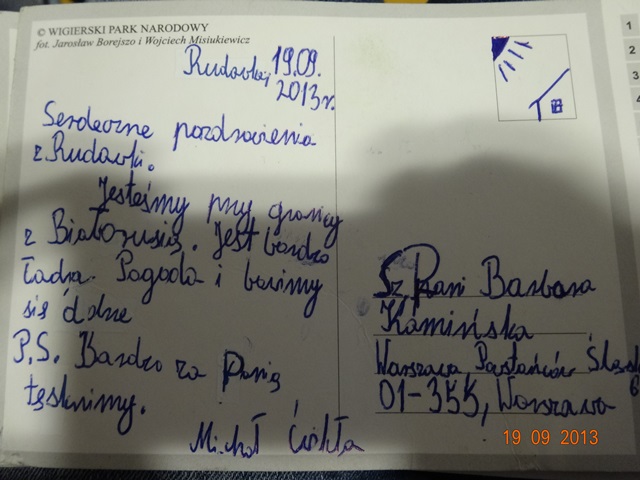 © WIGIERSKI PARK NARODOWY
fot. Jarosław Borejszo i Wojciech Misiukiewicz
Rudawka, 19.09.
2013r.
Serdeczne pozdrowienia
z Rudawki.
Jesteśmy przy granicy
z Białorusią. Jest bardzo
ładna Pogoda i bawimy
się
P.S. Bardzo za Panią
tęsknimy.
Michał Ćwikła
Sz. Pani Barbara
Kamińska
Warszawa, Powstańców Śląsk
01-355, Warszawa
6
1
2
3
4
19 09 2013